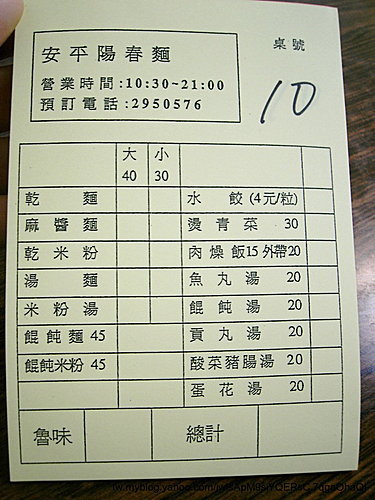 安平陽春麵
營業時間:10:30~21:00
預訂電話:2950576
桌號
10
大 小
40 30
乾麵 水餃(4元/粒)
麻醬麵 燙青菜 30
乾米粉 肉燥飯15 外帶20
湯麵 魚丸湯 20
米粉湯 餛飩湯 20
餛飩麵 45 貢丸湯 20
餛飩米粉 45 酸菜豬腸湯 20
蛋花湯 20
魯味 總計